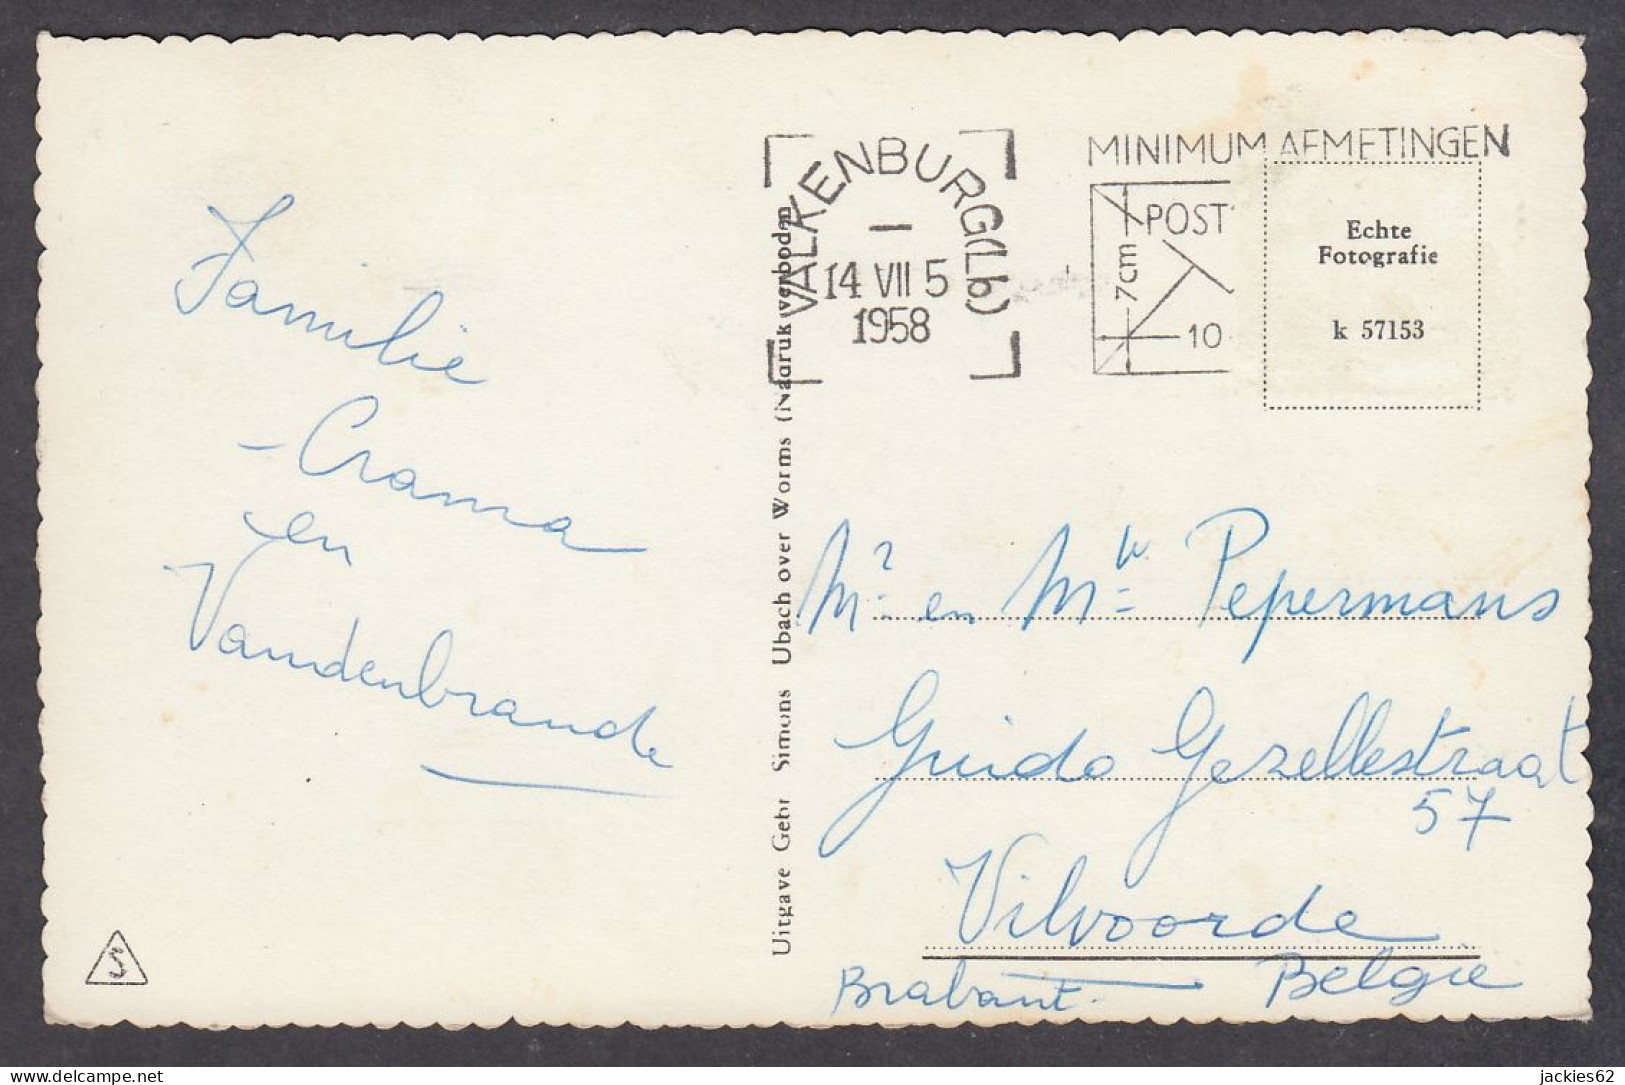 Familie
Crama
en
Vandenbrande
S
Uitgave Gebr Simons Ubach over Worms (Nadruk verboden
VALKENBURG(Lb)
14 VII 5
1958
MINIMUM AFMETINGEN
POST
7cm
10
Echte
Fotografie
k 57153
Mr en Mw Pepermans
Guido Gezellestraat
57
Vilvoorde
Brabant. België
delcampe.net
jackies62